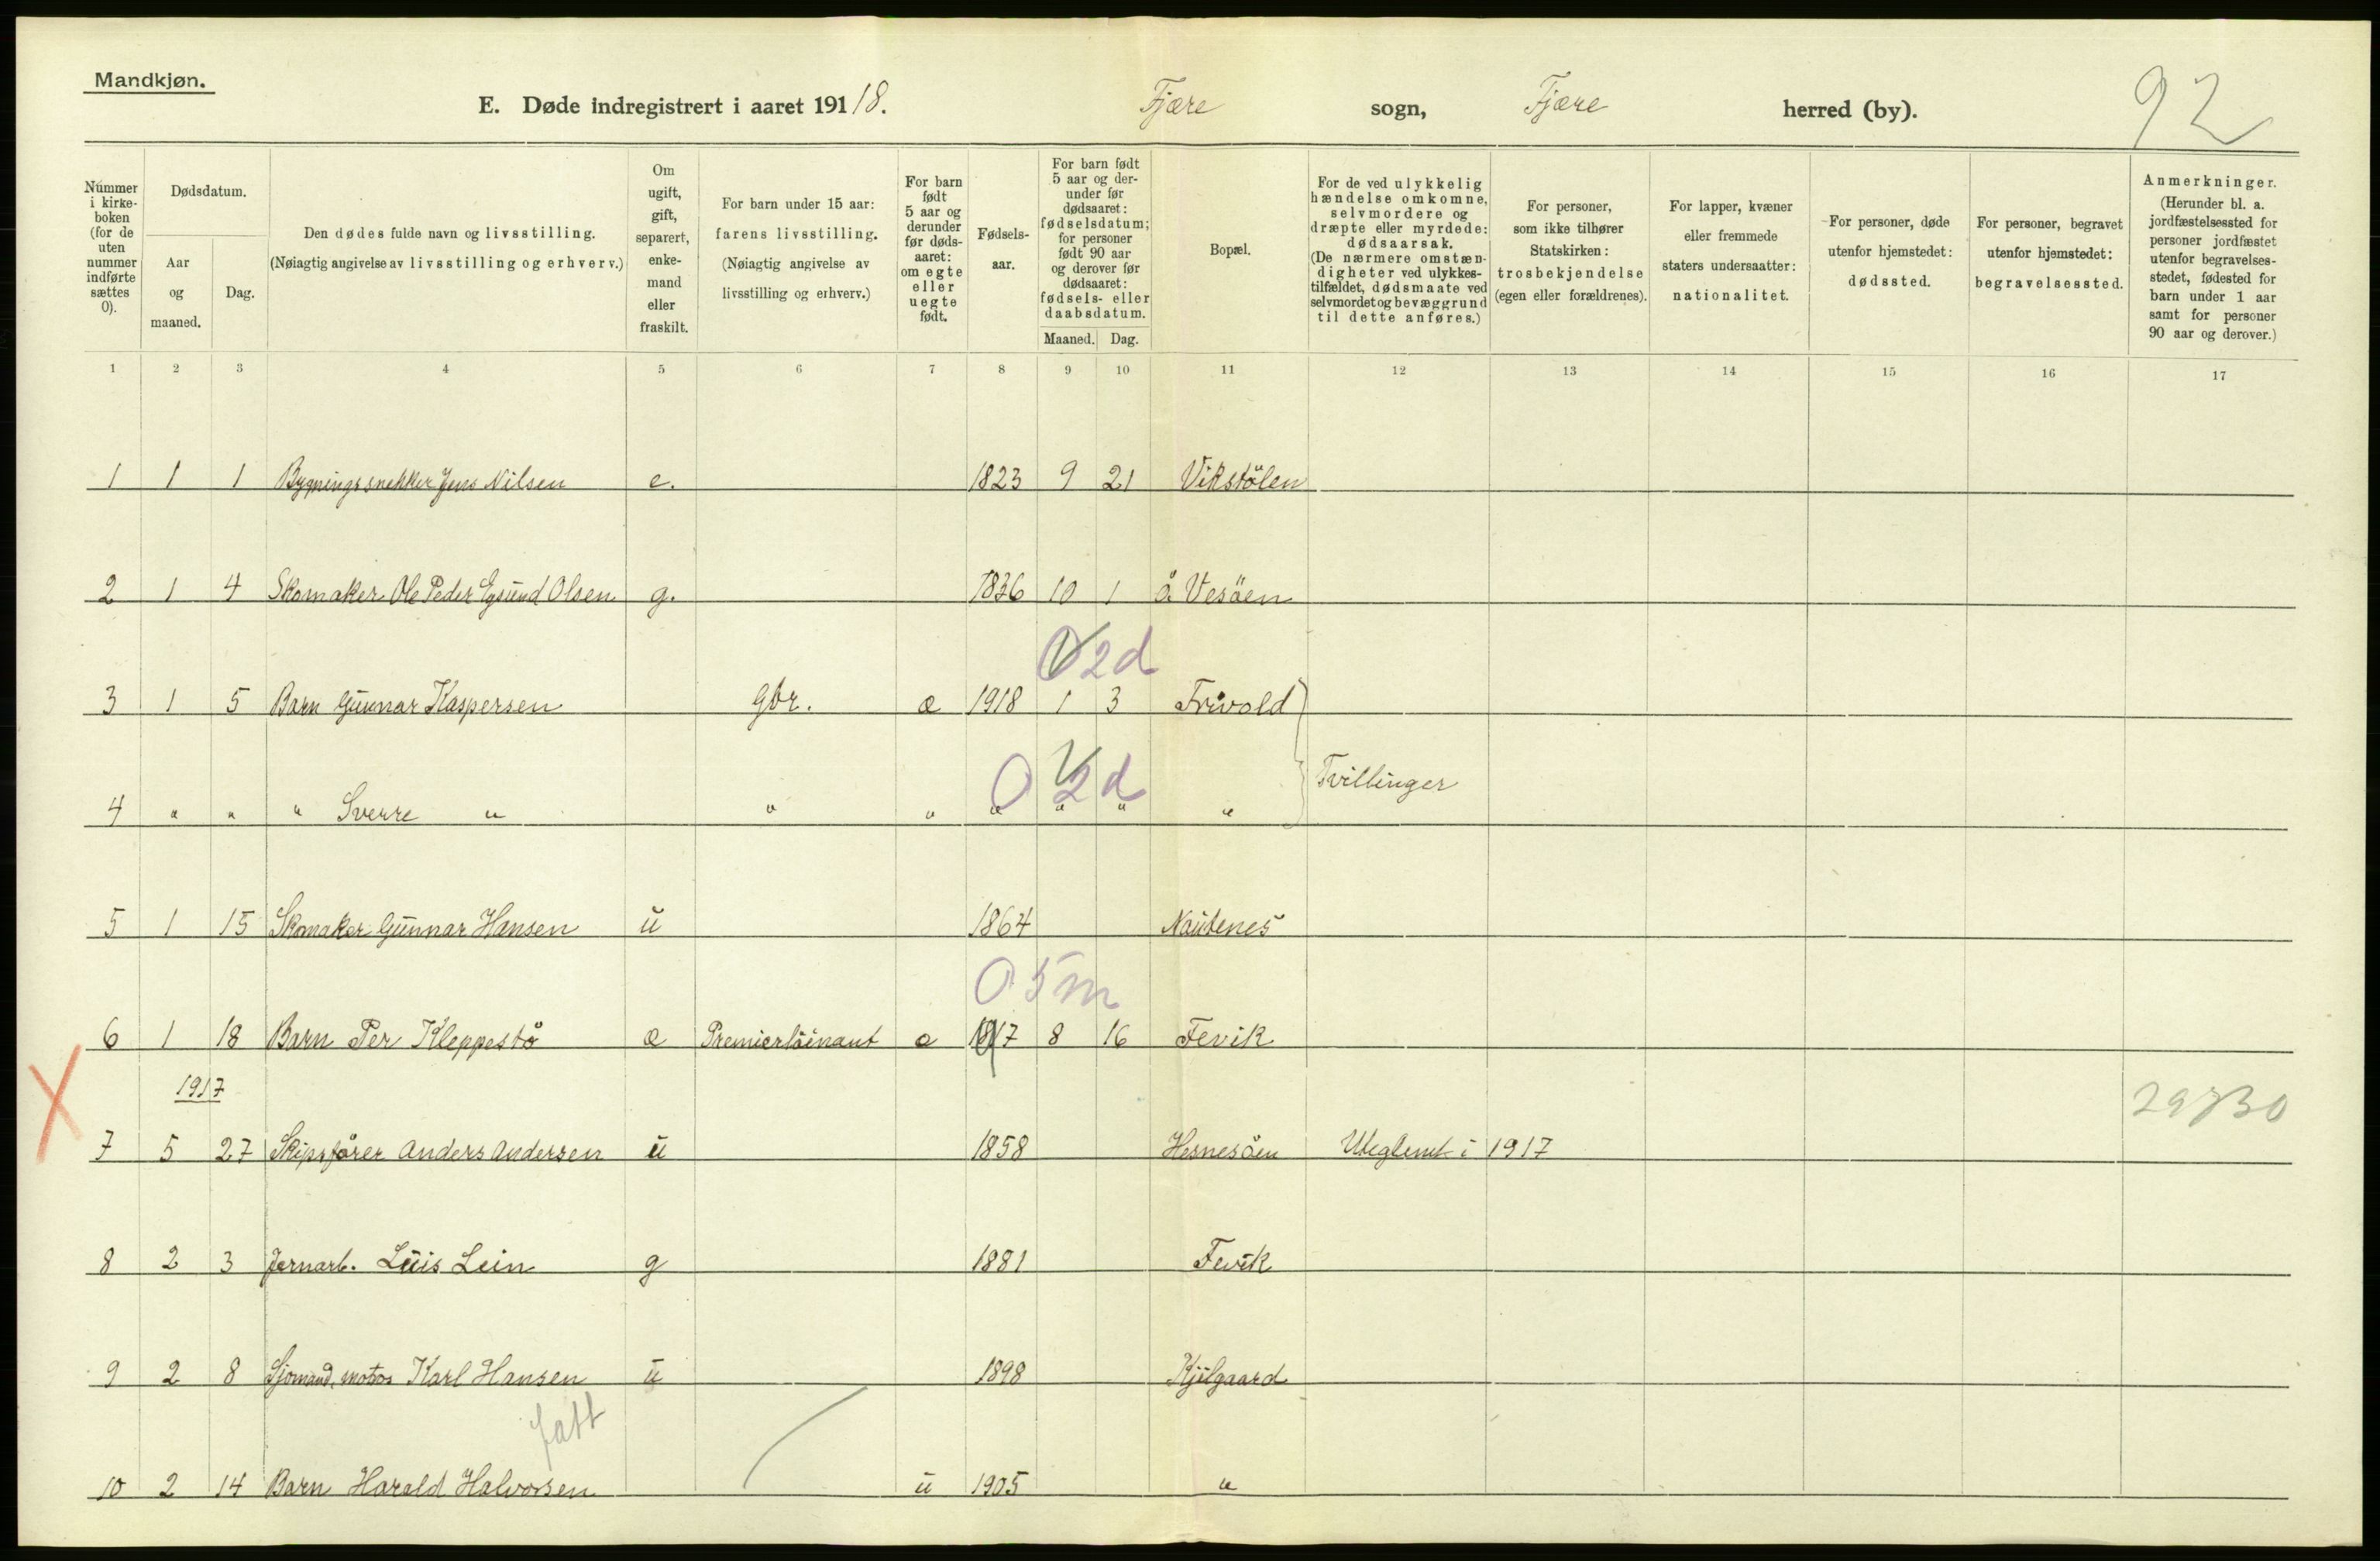 Mandkjøn.
E. Døde indregistrert i aaret 191 18. Fjære sogn, Fjære herred (by). 92
Nummer i kirke- boken (for de uten nummer indførte sættes 0).
Dødsdatum.
Aar og maaned.
Dag.
Den dødes fulde navn og livsstilling.
(Nøiagtig angivelse av livsstilling og erhverv.)
Om ugift, gift, separert, enke- mand eller fraskilt.
For barn under 15 aar: farens livsstilling. (Nøiagtig angivelse av livsstilling og erhverv.)
For barn født 5 aar og derunder før døds- aaret: om egte eller uegte født.
Fødsels- aar.
For barn født 5 aar og der- under før dødsaaret: fødselsdatum; for personer født 90 aar og derover før dødsaaret: fødsels- eller daabsdatum.
Maaned. Dag.
Bopæl.
For de ved ulykkelig hændelse omkomne, selvmordere og dræpte eller myrdede: dødsaarsak. (De nærmere omstæn- digheter ved ulykkes- tilfældet, dødsmaate ved selvmordet og bevæggrund til dette anføres.)
For personer, som ikke tilhører Statskirken: trosbekjendelse (egen eller forældrenes).
For lapper, kvæner eller fremmede staters undersaatter: nationalitet.
For personer, døde utenfor hjemstedet: dødssted.
For personer, begravet utenfor hjemstedet: begravelsessted.
Anmerkninger. (Herunder bl. a. jordfæstelsessted for personer jordfæstet utenfor begravelses- stedet, fødested for barn under 1 aar samt for personer 90 aar og derover.)
1 2 3 4 5 6 7 8 9 10 11 12 13 14 15 16 17
1 1 1 Bygningssnekker Jens Nilsen e. 1823 9 21 Vikstölen
2 1 4 Skomaker Ole Peder Egsund Olsen g. 1836 10 1 å Vesöen
0 2d
3 1 5 Barn Gunnar Kaspersen Gbr. æ 1918 1 3 Frivold
0 2d Tvillinger
4 " " " Sverre " " " " " " "
5 1 15 Skomaker Gunnar Hansen u 1864 Nautenes
0 5m
6 1 18 Barn Per Kleppestö æ Premierlöinant æ 1917 8 16 Fevik
1917
29730
7 5 27 Skipsförer Anders Andersen u 1858 Hesnesöen Uteglemt i 1917
8 2 3 Jernarb. Luis Lein g 1881 Fevik
9 2 8 Sjömand, matros Karl Hansen u 1898 Kjilgaard
fatt
10 2 14 Barn Harald Halvorsen u 1905 "